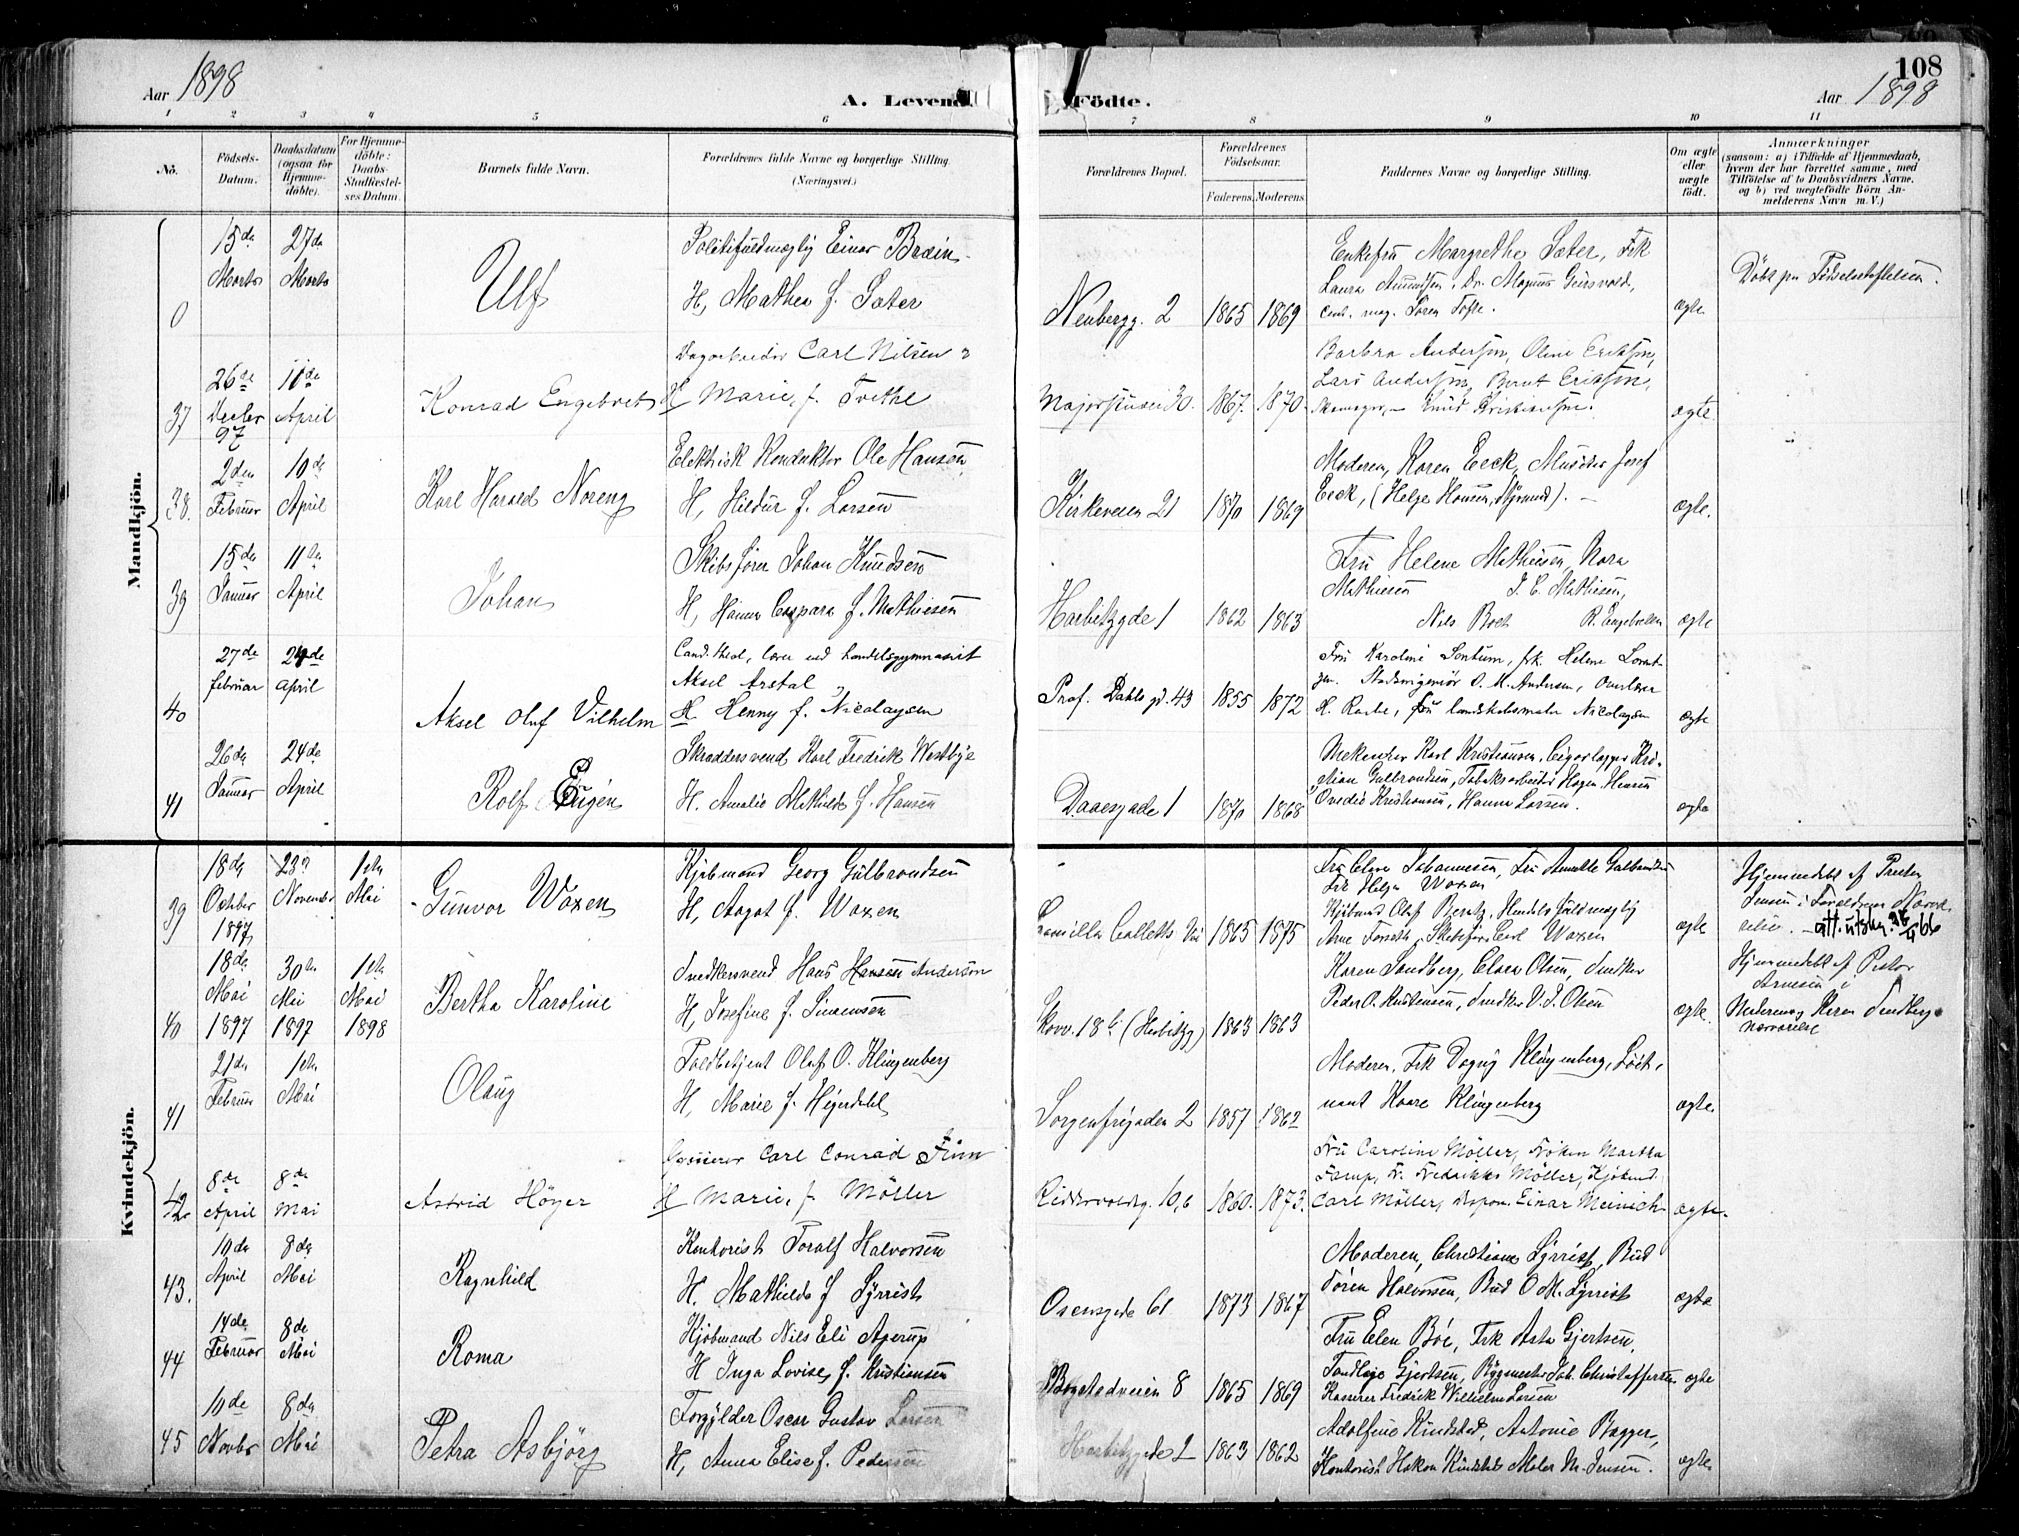 108
Aar 1898
A. Levende
Födte.
Aar 1898
1 2 3 4 5 6 7 8 9 10 11
No.
Födsels-Datum.
Daabsdatum (ogsaa for Hjemmedöbte).
For Hjemmedöbte: Daabs-Stadfæstelses Datum.
Barnets fulde Navn.
Forældrenes fulde Navne og borgerlige Stilling. (Næringsvei.)
Forældrenes Bopæl.
Forældrenes Födselsaar.
Faderens Moderens
Faddernes Navne og borgerlige Stilling.
Om ægte eller uægte födt.
Anmærkninger
(saasom: a) i Tilfælde af Hjemmedaab,
hvem der har forrettet samme, med
Tilföielse af to Daabsvidners Navne,
og b) ved uægtefödte Börn An-
melderens Navn m. V.)
Mandkjön.
0
15de Marts
27de Marts
Ulf
Politifuldmægtig Einar Bræin
H, Mathea f. Sæter
Neubergg. 2
1865 1869
Enkefru Margrethe Sæter, Frk
Laura Amundsen, Dr. Magnus
cand. mag. Sören Tofte.
ægte
Döbt paa Födselsstiftelsen.
37
26de Decbr 97
11de April
Konrad Engebret
Dagarbeider Carl Nilsen
H Marie, f. Trethe
Majorstuvei 30.
1867. 1870.
Barbra Andersen, Oline Eriksen,
Lars Andersen, Bernt Eriksen,
Knud Kristiansen.
ægte.
38.
2den Februar
10de April
Karl Harald Noreng
Elektrisk Konduktör Ole Hansen
H, Hildur f. Larsen
Kirkeveien 21
1870 1869
Moderen, Karen Eeck, Musiker Josef
Eeck, (Helge Hansen,
ægte.
39
15de Januar
11te April
Johan
Skibsförer Johan Knudsen
H, Hanna Caspara f. Mathiesen
Harbitzgade 1
1862 1863
Fru Helene Mathiesen, Nora
Mathiesen J. C. Mathiesen,
Nils Boch R. Engebretsen
ægte
40
27de februar
24de april
Aksel Oluf Vilhelm
Cand. theol, lærer ved handelsgymnasiet
Aksel Arstal
H Henny f. Nicolaysen
Prof. Dahls gd. 43
1855 1872
Fru Karoline Sontum, frk. Helene Lorent-
zen. Stadsingeniör O. M. Andersen, Overlærer
H. Raabe, fru landskabsmaler Nicolaysen
ægte
41
26de Januar
24de April
Rolf Eugen
Skræddersvend Karl Fredrik Westbye
H. Amalie Mathilde f. Hansen
Daaesgade 1
1870 1868
Mekaniker Karl Kristiansen, Cigarlægger Kri-
stian Gulbrandsen, Tobaksarbeider Hagen Hansen
Ovedie Kristiansen, Hanna Larsen.
ægte
Kvindekjön.
39
18de Oktober 1897
23de November
1ste Mai
Gunvor Woxen
Kjöbmand Georg Gulbrandsen
H, Aagot f. Woxen
Camilla Colletts Vei
1865 1875
Fru Clara Johannesen, Fru Amalie Gulbrandsen
Frk Helga Woxen
Kjöbmand Olaf Handelsfuldmægtig
Arne Forseth, Skibsförer Carl Woxen
ægte
Hjemmedöbt af Presten
Jensen i Forældrenes Nærvæ-
relse. att. utskr.
40
18de Mai 1897
30te Mai 1897
1ste Mai 1898
Bertha Karoline
Snedkersvend Hans Hansen Anderson
H, Josefine f. Simensen
Skovv. 18b (Harbitzg)
1863 1863
Karen Sandberg, Clara Olsen, Snedker
Peder O. Kristensen, Snedker V. J. Olsen
ægte.
Hjemmedöbt af Pastor
Arnesen i
Moderens og Karen Sandbergs
nærværelse
41
21de Februar
1ste Mai
Olaug
Toldbetjent Oluf O. Klingenberg
H, Marie f. Hejerdahl
Sorgenfrigaden 2
1857 1862
Moderen, Frk Dagny Klingenberg, Löit-
nant Kaare Klingenberg
ægte.
42
8de April
8de Mai
Astrid Höyer
Carl Conrad Finn
H Marie, f. Möller
Riddervoldsg. 10,b
1860. 1873.
Fru Caroline Möller, Fröken Martha
Fr. Fredrikke Möller, Kjöbmd.
Carl Möller, Dispon. Einar Meinich
ægte.
43.
10de April
8de Mai
Ragnhild
Kontorist Toralf Halvorsen
H. Mathilde f Syrrist
Oscarsgade 61
1873 1867
Moderen, Christiane Syrrist, Bud
Sören Halvorsen, Bud O. M. Syrrist
ægte
44
14de Februar
8de Mai
Roma
Kjöbmand Nils Eli Aperup
H Inga Lovise, f. Kristiansen
Bogstadveien 8
1865 1869
Fru Elen Böe, Frk Asta Gjertsen,
Tandlæge Gjertsen, Bygmester Joh. Christoffersen
Kaserer Fredrik Wilhelm Larsen
ægte
45
10de Novbr
8de Mai
Petra Asbjörg
Forgylder Oscar Gustav Larsen
H, Anna Elise f. Pedersen
Harbitzgade 2
1863 1862
Adolfine Kindstad, Antonie Bagger,
Kontorist Hakon Kindstad Maler M. Jensen.
ægte